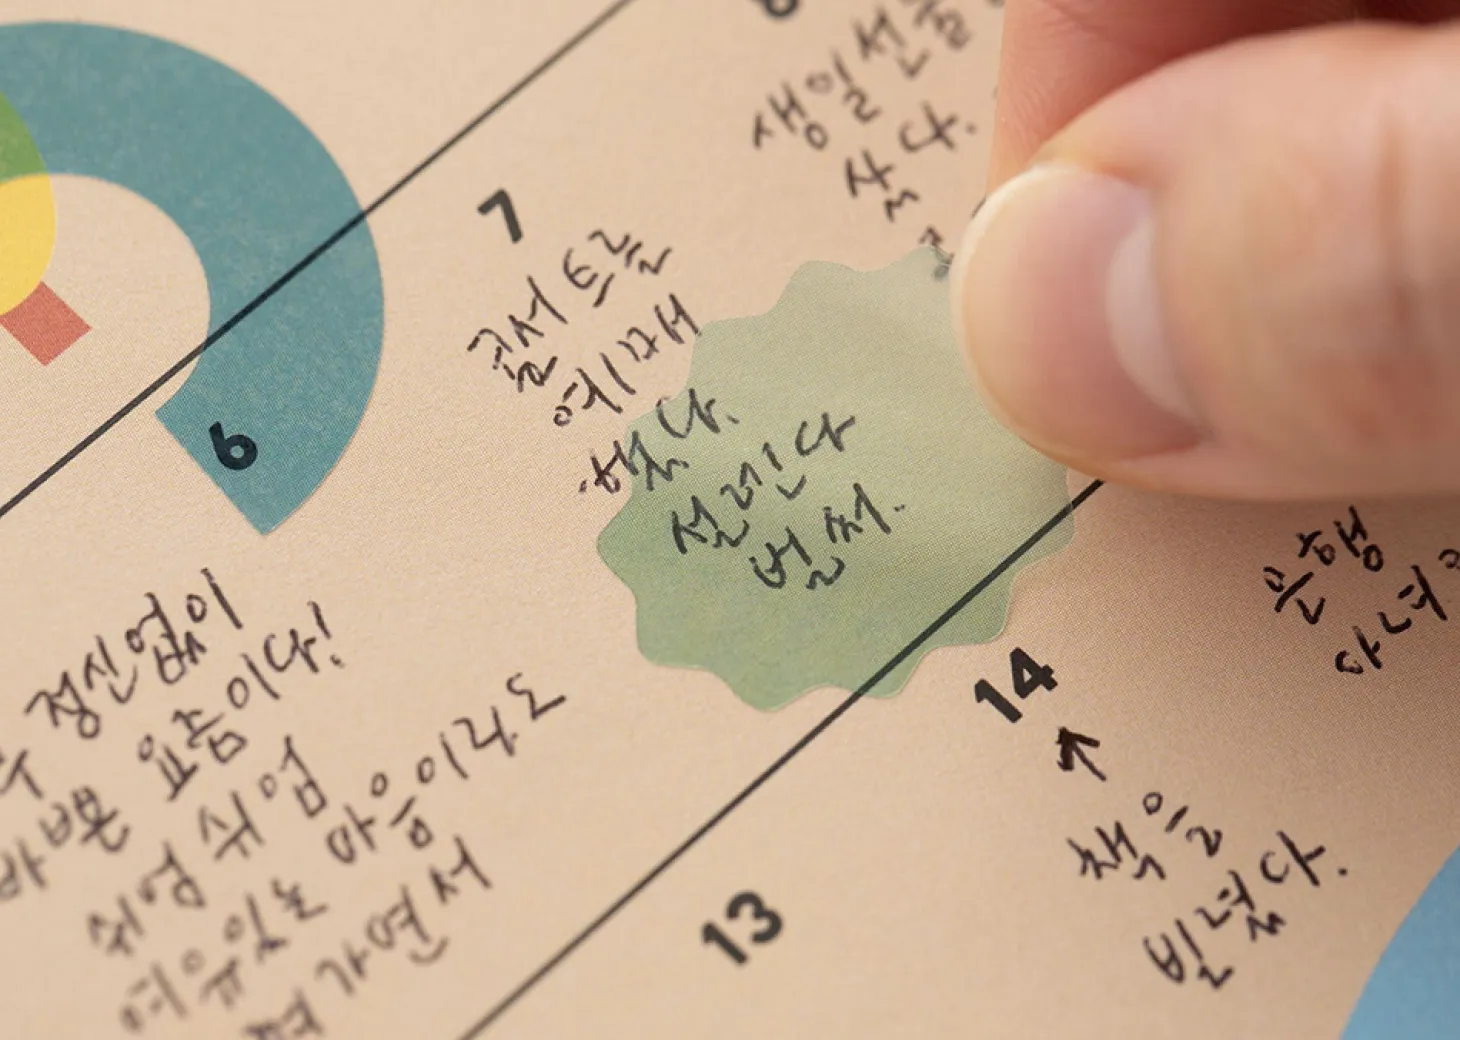 생일선물
7
콘서트를
예매
했다.
설렌다
벌써.
6
정신없이
바쁜 요즘이다!
쉬엄 쉬엄
여유있는 마음이라도
가면서
13
14
↑
책을
빌렸다.
은행
다녀